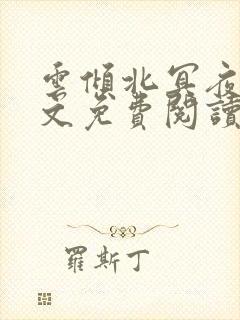 雲傾北冥夜
文免費閱讀
羅斯丁